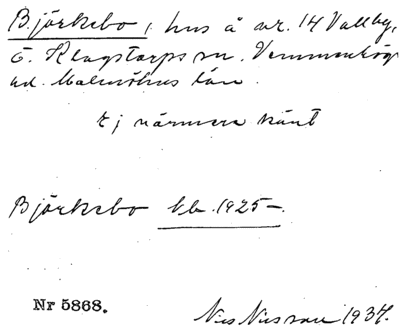 Björkebo, hus å nr. 14 Vallby,
Ö. Klagstorps sn. Vemmenhögs
hd. Malmöhus län.
Ej närmare känt
Björkebo bb. 1925 –.
Nr 5868.
Nils Nilsson 1937.